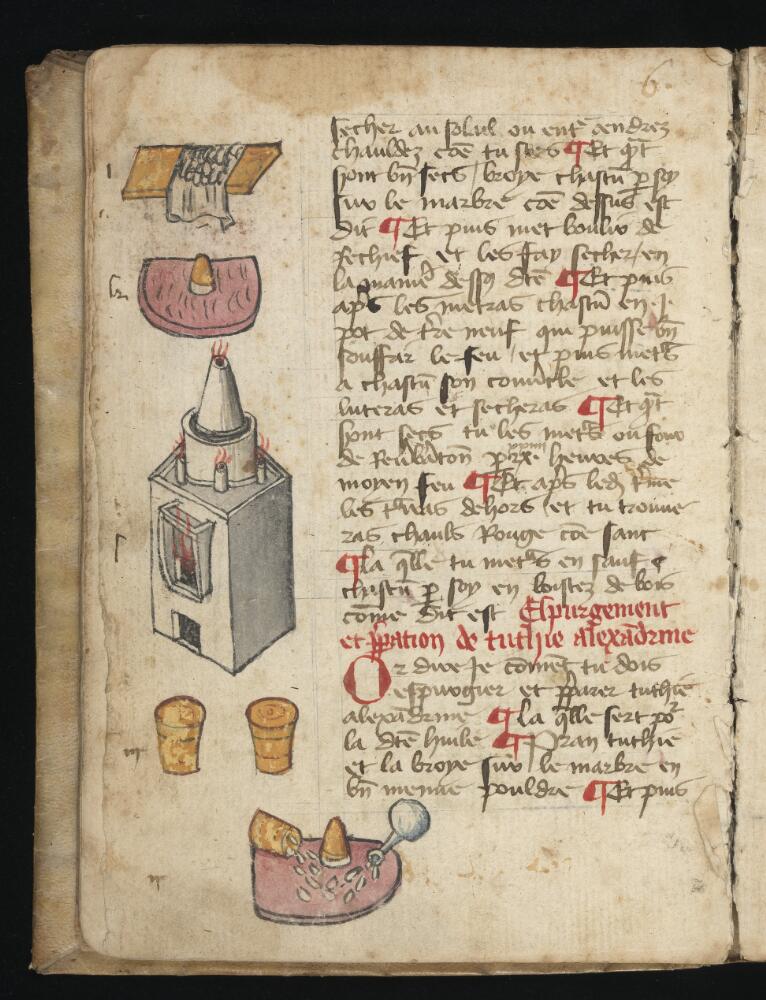 6
secher au solul ou entᵉ cendrez
chauldez cōe tu scés ¶ Et qᵃt
sont bn̄ secs / broye chascū ꝑ soy
sur le marbre cōe dessus est
dit ¶ Et puis met boulir de
rechief et les fay secher / en
la maniere dessꝰ dc̄e ¶ Et puis
apˢ les metras chascū en .Ie.
pot de tr̄e neuf qui puisse bn̄
souffrir le feu / et puis metᵃs
a chascū son couuᵉcle et les
luteras et secheras ¶ Et qᵃt
sont secs tu les metᵃs ou four
de heures de
moyen feu ¶ Et apˢ led
les tᵉras dehors / et tu trouue
ras chaulx Rouge cōe sanc
¶ la q̄lle tu metᵃs en sauf
chascū ꝑ soy en boistez de bois
cōme dit est Espurgement
et ꝑpation de tuthie alexādrine
Or dire Ie cōmēt tu dois
espurgier et ꝑparer tuthie
alexādrine ¶ la q̄lle sert poʳ
la dc̄e huile ¶ Pran tuthie
et la broye sur le marbre en
bn̄ menue pouldre ¶ Et puis